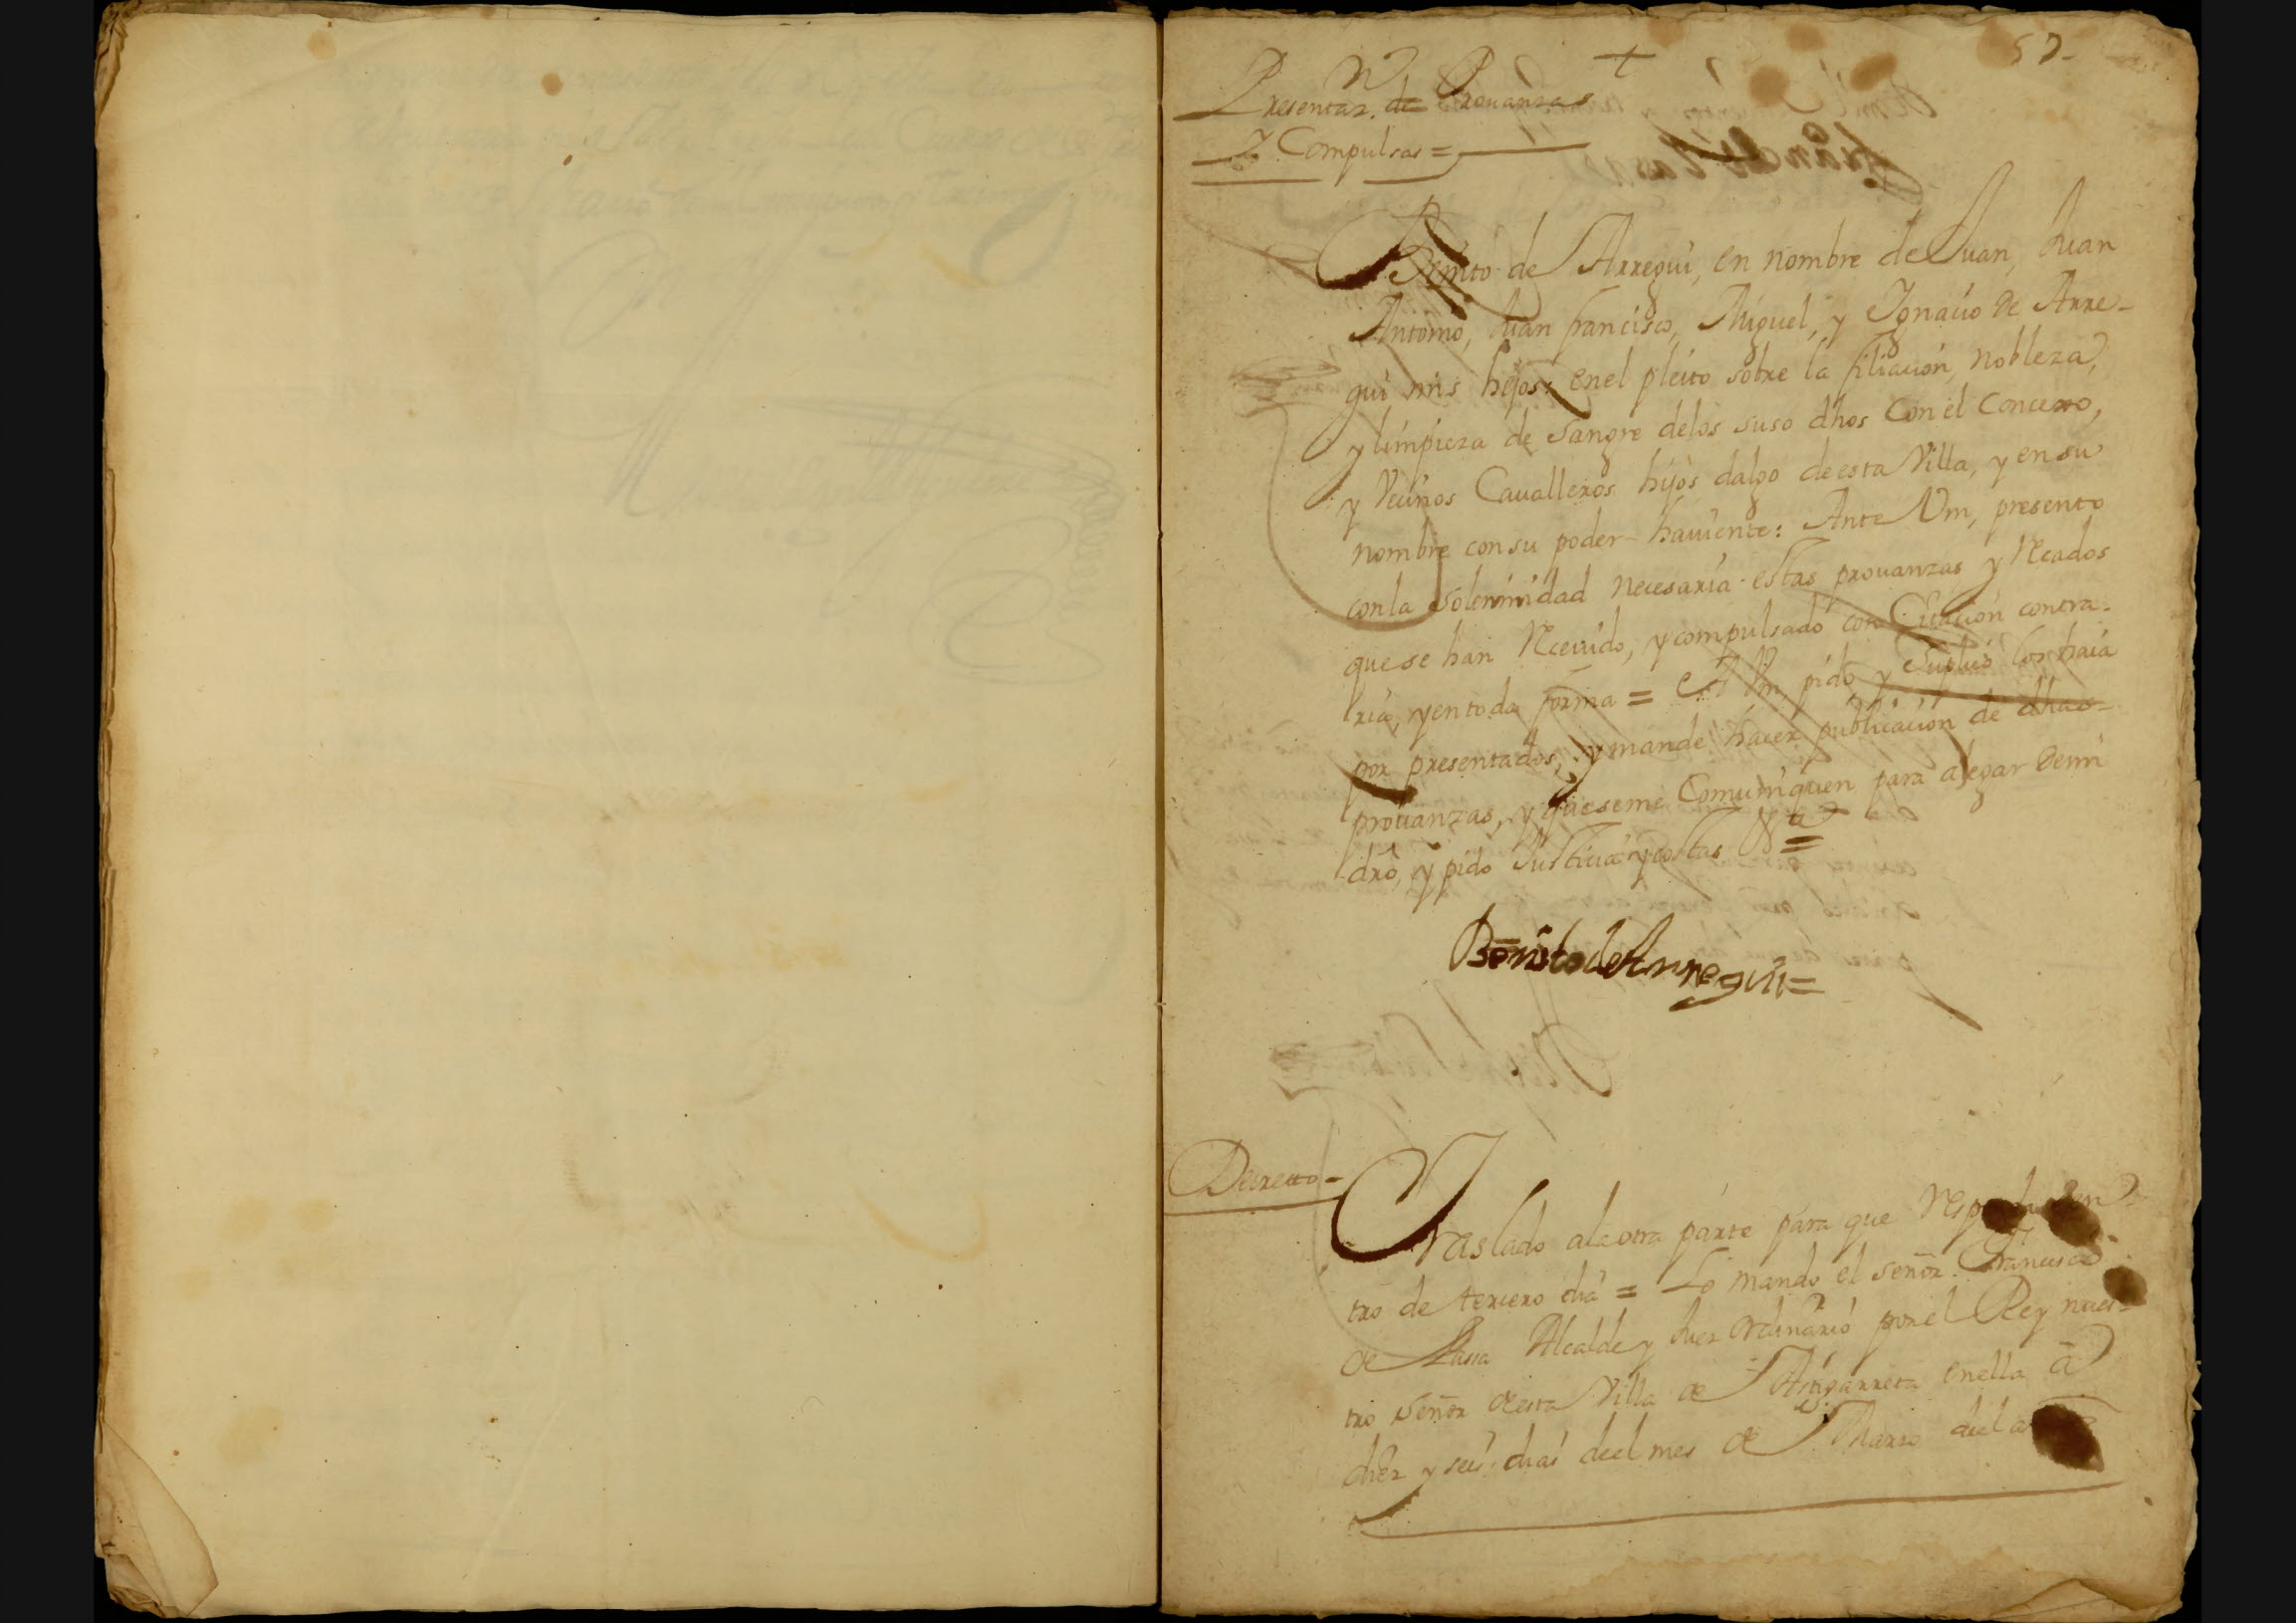 +
57-
Presentaz.n de Prouanzas
Y Compulsas =
Benito de Arregui, en nombre de Juan, Juan
Antonio, Juan francisco, Miguel, y Ygnacio de Arre-
gui mis hijos: en el pleito sobre la filiacion, nobleza,
y limpieza de sangre delos suso dhos Con el Concexo,
y Vecinos Caualleros hijos dalgo de esta Villa, y en su
nombre con su poder hauiente: Ante Vm, presento
con la solemnidad necesaria estas prouanzas y Recados
que se han Receuido, y compulsado con Citacion contra-
ria, y en toda forma = A Vm, pido y Suplico los haia
por presentados, y mande hacer publicacion de dhas
prouanzas, y que se me Comuniquen para alegar de mi
dro, y pido Justicia y costas &ta =
Benito de Arregui =
Decretto-
Traslado ala otra parte para que
tro de tercero dia = Lo mando el señor Francisco
de Alcalde y Juez Ordinario por el Rey nues-
tro Señor de esta Villa de Astigarreta en ella a
diez y seis dias de el mes de Marzo de el